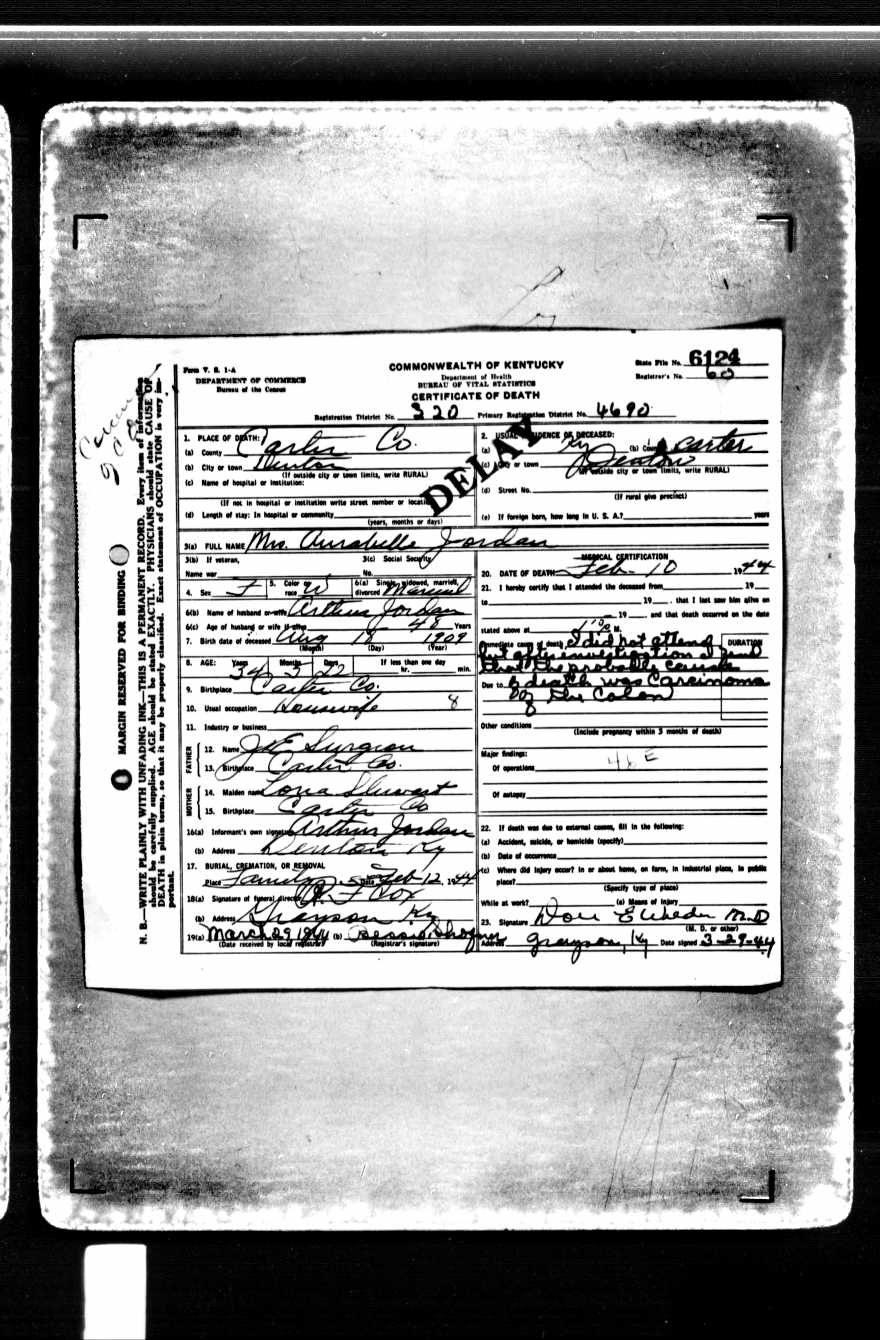 Form V. S. 1-A
DEPARTMENT OF COMMERCE
Bureau of the Census
COMMONWEALTH OF KENTUCKY
Department of Health
BUREAU OF VITAL STATISTICS
CERTIFICATE OF DEATH
State File No. 6124
Registrar's No. 60
Registration District No. 320 Primary Registration District No. 4690
DELAY
1. PLACE OF DEATH:
(a) County Carter Co.
(b) City or town Denton
(If outside city or town limits, write RURAL)
(c) Name of hospital or institution:
(If not in hospital or institution write street number or location)
(d) Length of stay: In hospital or community
(years, months or days)
2. USUAL RESIDENCE OF DECEASED:
(a) Ky (b) County Carter
(c) City or town Denton
(If outside city or town limits, write RURAL)
(d) Street No.
(If rural give precinct)
(e) If foreign born, how long in U. S. A.? years
3(a) FULL NAME Mrs. Aurabelle Jordan
3(b) If veteran,
Name war
3(c) Social Security
No.
4. Sex F 5. Color or race W 6(a) Single, widowed, married, divorced Married
6(b) Name of husband or wife Arthur Jordan
6(c) Age of husband or wife if alive 48 Years
7. Birth date of deceased Aug 18 1909
(Month) (Day) (Year)
8. AGE: Years Months Days If less than one day
34 3 22 hr. min.
9. Birthplace Carter Co.
10. Usual occupation Housewife 8
11. Industry or business
FATHER
12. Name J E Surgeon
13. Birthplace Carter Co.
MOTHER
14. Maiden name Lona Stewart
15. Birthplace Carter Co
16(a) Informant's own signature Arthur Jordan
(b) Address Denton Ky
17. BURIAL, CREMATION, OR REMOVAL
Place Family Date Feb 12, 1944
18(a) Signature of funeral director F Cox
(b) Address Grayson Ky
19(a) March 29 1944 (b) Bessie
(Date received by local registrar) (Registrar's signature)
MEDICAL CERTIFICATION
20. DATE OF DEATH: Feb. 10 1944
21. I hereby certify that I attended the deceased from 19
to 19 , that I last saw him alive on
19 , and that death occurred on the date
stated above at M.
Immediate cause of death I did not attend
but after investigation I find
that the probable cause
Due to of death was Carcinoma
of the Colon
DURATION
Other conditions
(Include pregnancy within 3 months of death)
Major findings:
Of operations 46E
Of autopsy
22. If death was due to external causes, fill in the following:
(a) Accident, suicide, or homicide (specify)
(b) Date of occurrence
(c) Where did injury occur? In or about home, on farm, in industrial place, in public
place?
(Specify type of place)
While at work? (e) Means of injury
23. Signature Don E M.D
(M. D. or other)
Address Grayson, Ky Date signed 3-29-44
MARGIN RESERVED FOR BINDING
N. B.—WRITE PLAINLY WITH UNFADING INK—THIS IS A PERMANENT RECORD. Every item of information
should be carefully supplied. AGE should be stated EXACTLY. PHYSICIANS should state CAUSE OF
DEATH in plain terms, so that it may be properly classified. Exact statement of OCCUPATION is very im-
portant.